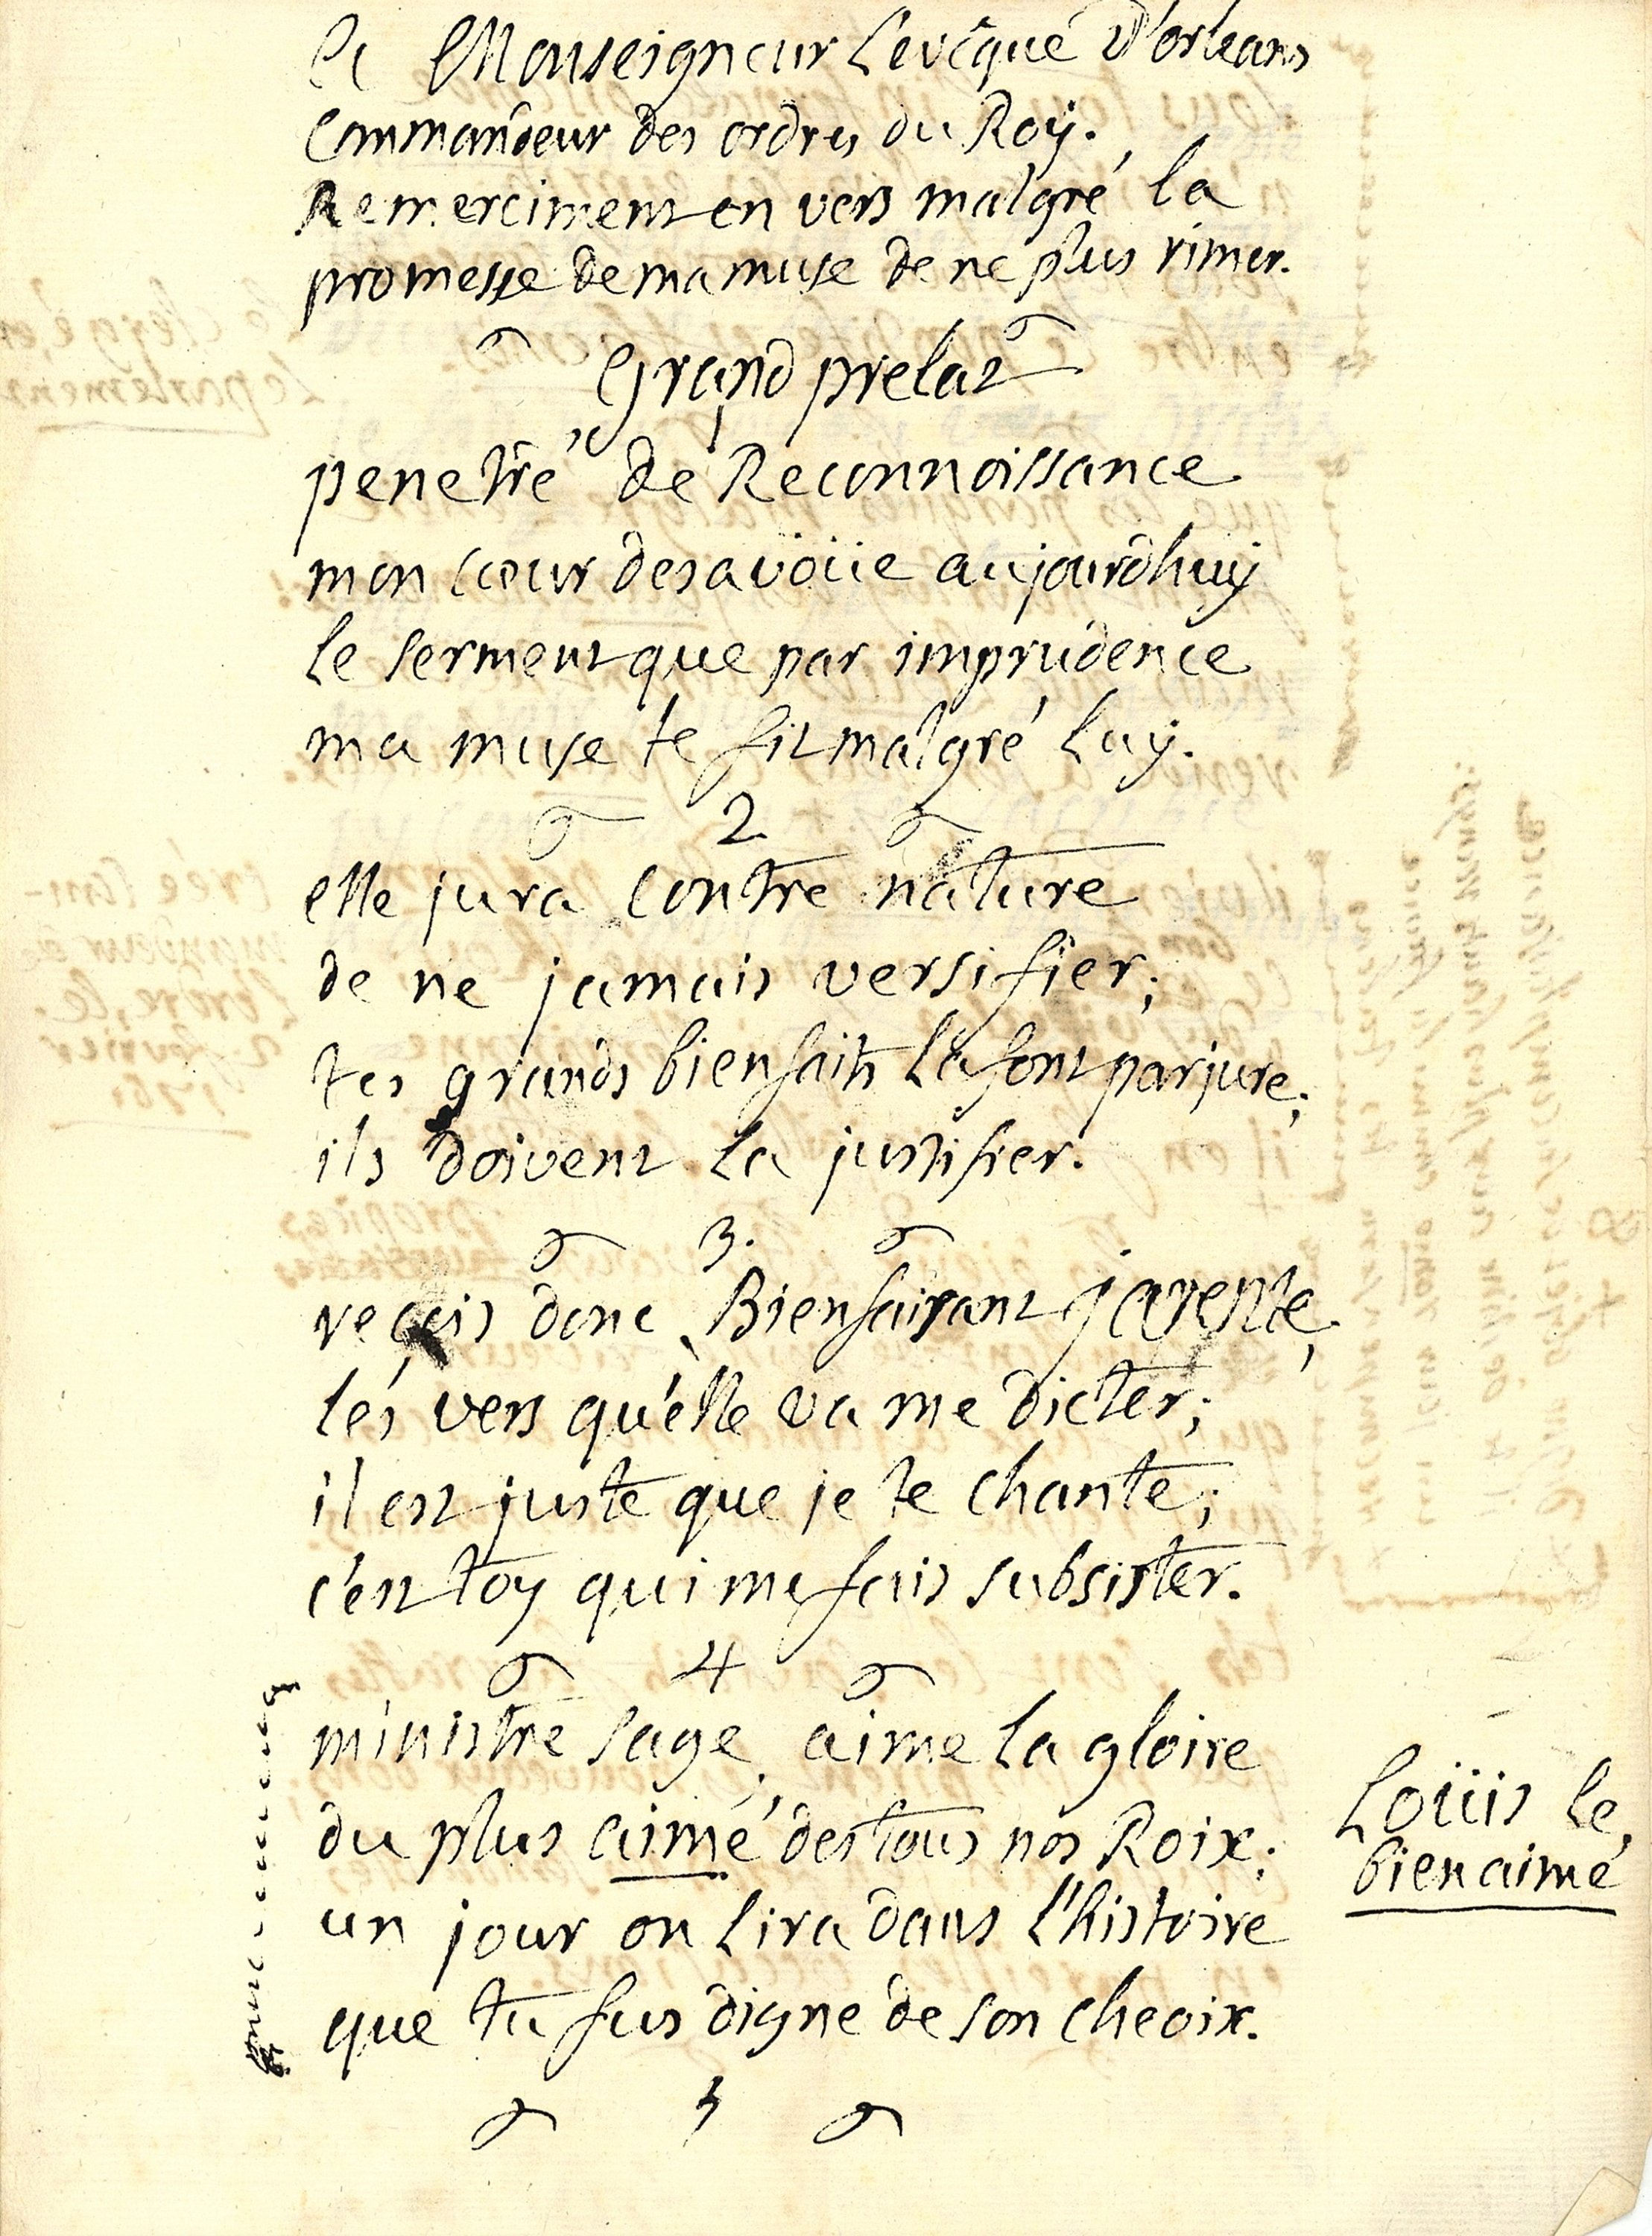 A Monseigneur L'evêque D'orleans
Commandeur des ordres du Roÿ.
Remerciment en vers malgré la
promesse de ma muse de ne plus rimer.
Grand prelat
penetré de Reconnoissance
mon cœur desavoüe aujourdhuy
le serment que par imprudence
ma muse te fit malgré Luÿ.
2
elle jura contre nature
de ne jamais versifier;
tes grands bienfaits La font parjure;
ils doivent La justifier.
3.
reçois donc, Bienfaisant jarente,
les vers qu'elle va me dicter;
il est juste que je te chante;
c'est toy qui me fais subsister.
4
ministre sage, aime La gloire
du plus aimé des tous nos Roix;
Loüis le
bien aimé
un jour on Lira dans l'histoire
que tu fus digne de son cheoix.
5